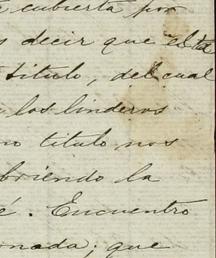 cubierta por
decir que esta
título, del cual
los linderos
no titulo nos
briendo la
é. Encuentro
onada; que